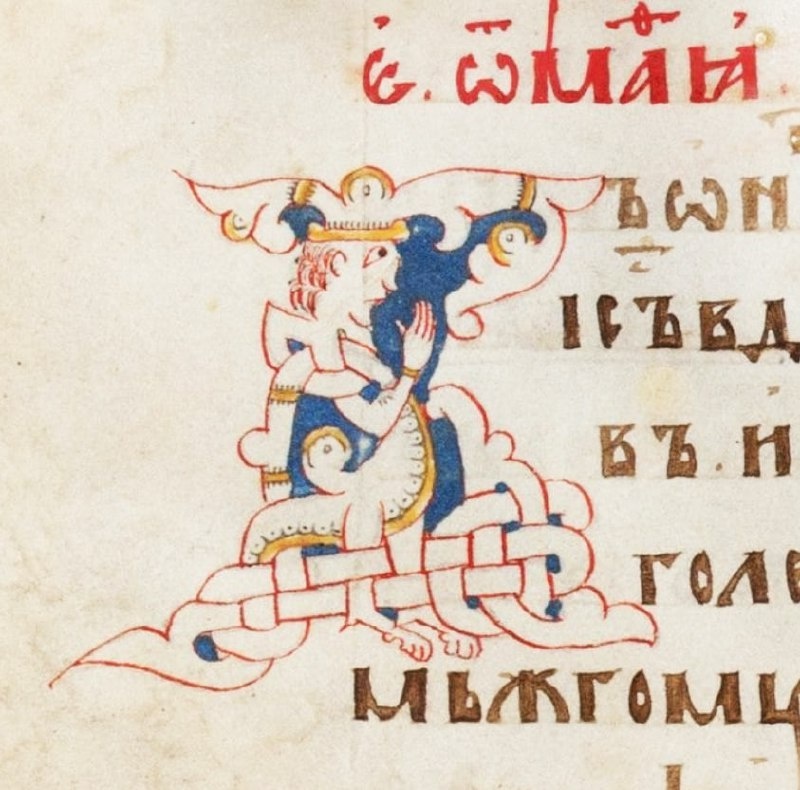 є҃. ѿ маⷴꙗ.
Въѡн
ісъвд
въ.и
голе
мьжгомц